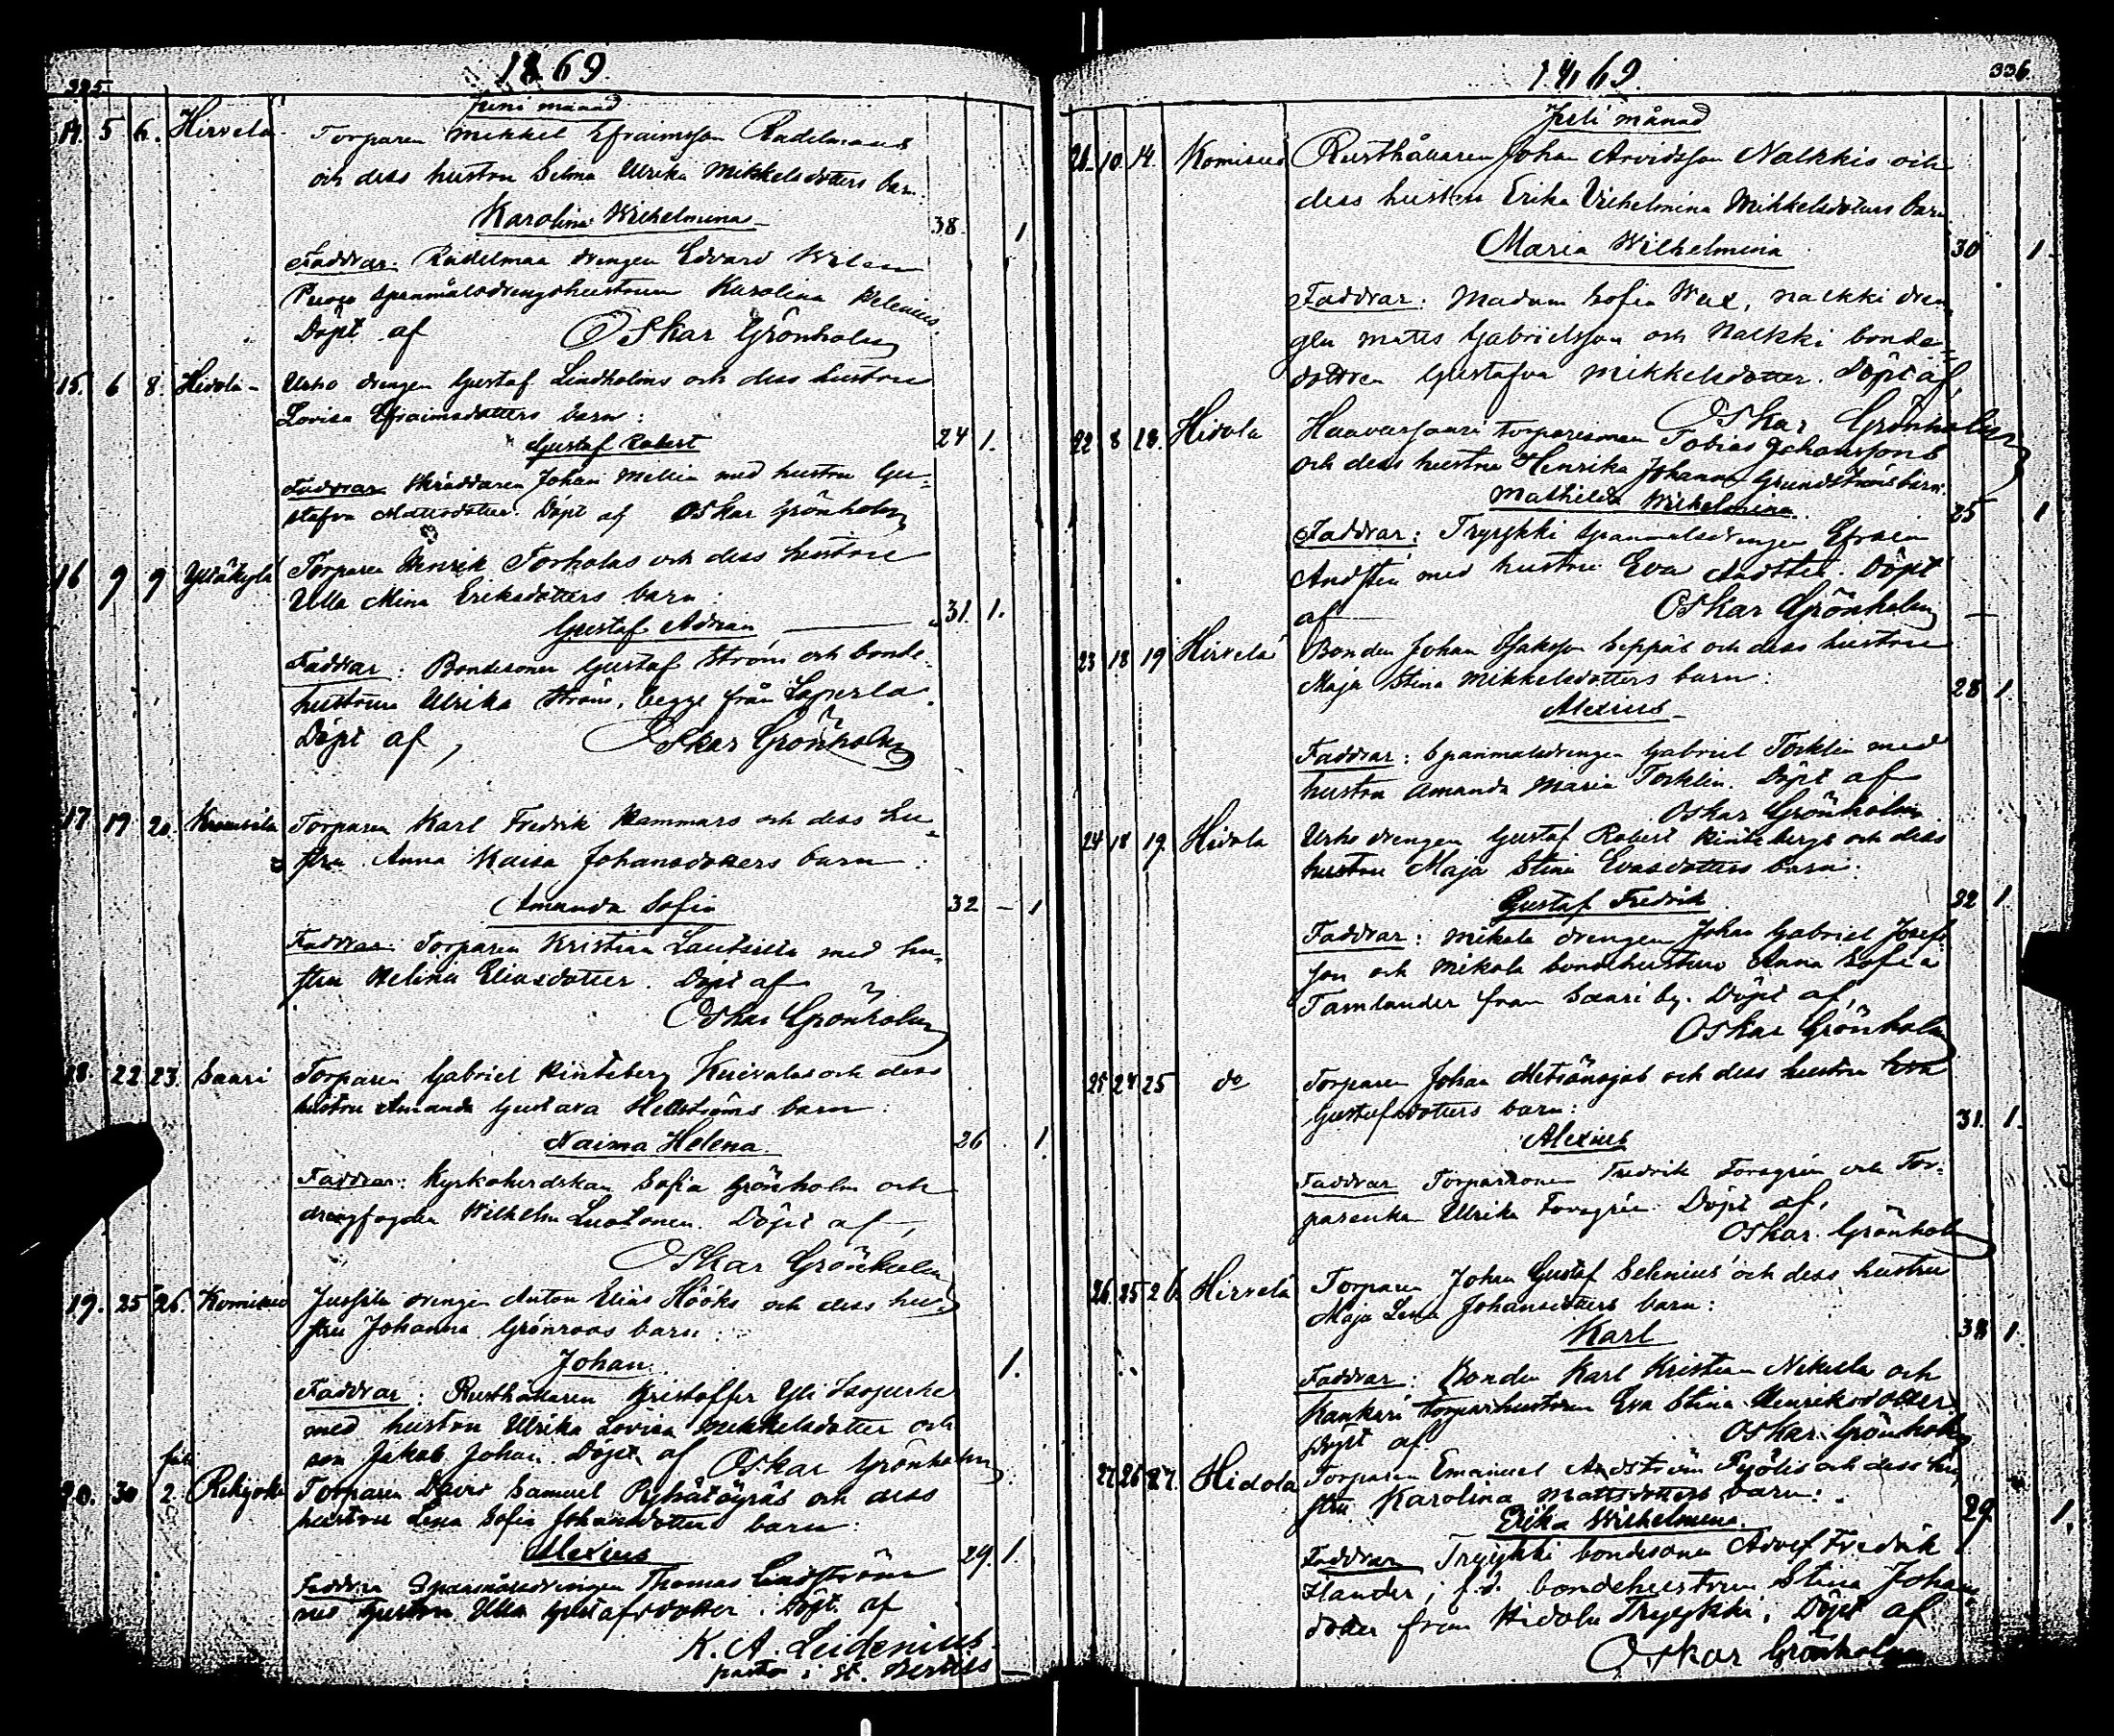 335
1869.
Juni månad
14. 5 6. Hirvelä Torparen Mikkel Efraimsson Radelmaas
och dess hustru Selma Ulrika Mikkelsdotters barn:
Karolina Wilhelmina 38. 1
Faddrar: Radelmaa drengen Edvard
spanmålsdrengshustrun Karolina
Döpt af Oskar Grönholm
15. 6 8. Hidola Urho drengen Gustaf Lindholms och dess hustru
Lovisa Efraimsdotters barn:
Gustaf Robert 24 1.
Faddrar Skräddaren Johan Mellin med hustru Gu=
stafva Mattsdotter. Döpt af Oskar Grönholm
16 9 9 Yläkylä Torparen Henrik Torholas och dess hustru
Ulla Mina Eriksdotters barn:
Gustaf Adrian 31. 1.
Faddrar: Bondesonen Gustaf Ström och bonde=
hustrun Ulrika Ström, begge från Laperla.
Döpt af, Oskar Grönholm
17. 19 20. Torparen Karl Fredrik Hammars och dess hu=
stru Anna Kaisa Johansdotters barn:
Amanda Sofia 32 – 1
Faddrar: Torparen Kristian med hu=
stru Helina Eliasdotter. Döpt af
Oskar Grönholm
18. 22 23. Saari Torparen Gabriel Rinteberg Kuivalas och dess
hustru Amanda Gustava Hellströms barn:
Naima Helena. 26 1.
Faddrar: Kyrkoherdskan Sofia Grönholm och
drengfogden Wilhelm Luotonen. Döpt af,
Oskar Grönholm
19. 25 26. Komisuo Jussila drengen Anton Elias Hööks och dess hu=
stru Johanna Grönroos barn:
Johan 1.
Faddrar: Rusthållaren Kristoffer Yli
med hustru Ulrika Lovisa Mikkelsdotter och
son Jakob Johan. Döpt af Oskar Grönholm
20. 30 2. Rekijoki Torparen David Samuel och dess
hustru Lena Sofia Johansdotters barn:
Alexius 29. 1.
Faddrar Spanmålsdrengen Thomas Lindström
med hustru Ulla Gustafsdotter. Döpt af
K. A. Leidenius
pastor i St. Bertils
336
1869.
Juli månad
21. 10. 14. Komisuo Rusthållaren Johan Arvidsson Nalkkis och
dess hustru Erika Vilhelmina Mikkelsdotters barn
Maria Wilhelmina 30 1.
Faddrar: Madam Sofia Wax, Nalkki dren=
gen Matts Gabrielsson och Nalkki bonde=
dottren Gustafva Mikkelsdotter. Döpt af,
Oskar Grönholm
22 8 18. Hidola torparesonen Tobias Johanssons
och dess hustru Henrika Johanna Grundströms barn.
Mathilda Wilhelmina 25 1
Faddrar: Tryykki spanmålsdrengen Efraim
Andsten med hustru Eva Andsten. Döpt
af Oskar Grönholm
23 18 19 Hirvelä Bonden Johan Isaksson Seppäs och dess hustru
Maja Stina Mikkelsdotters barn:
Alexius 28 1.
Faddrar: Spanmålsdrengen Gabriel Torklin med
hustru Amanda Maria Torklin. Döpt af
Oskar Grönholm
24 18 19. Hidola Urho drengen Gustaf Robert Rintebergs och dess
hustru Maja Stina Evasdotters barn:
Gustaf Fredrik 22 1
Faddrar: Mikola drengen Johan Gabriel Josef=
son och Mikola bondehustrun Anna Sofia
Tamlander från Saari by. Döpt af,
Oskar Grönholm
25 24 25 do Torparen Johan Metsänojas och dess hustru Eva
Gustafsdotters barn:
Alexius 31. 1.
Faddrar Torparsonen Fredrik Forsgrén och Tor=
parenkan Ulrika Forsgrén. Döpt af,
Oskar Grönholm
26. 25 26. Hirvelä Torparen Johan Gustaf Selenius' och dess hustru
Maja Lena Johansdotters barn:
Karl 38 1.
Faddrar: Bonden Karl Kristian Nikula och
Kankari torparhustrun Eva Stina Henriksdotter
Döpt af Oskar Grönholm
27. 26 27. Hidola Torparen Emanuel Andström Pyölis och dess hu=
stru Karolina Mattsdotters barn:
Erika Wilhelmina. 29. 1.
Faddrar Tryykki bondesonen Adolf Fredrik
Ilander, f.d. bondehustrun Stina Johans=
dotter från Hidola Tryykki. Döpt af
Oskar Grönholm